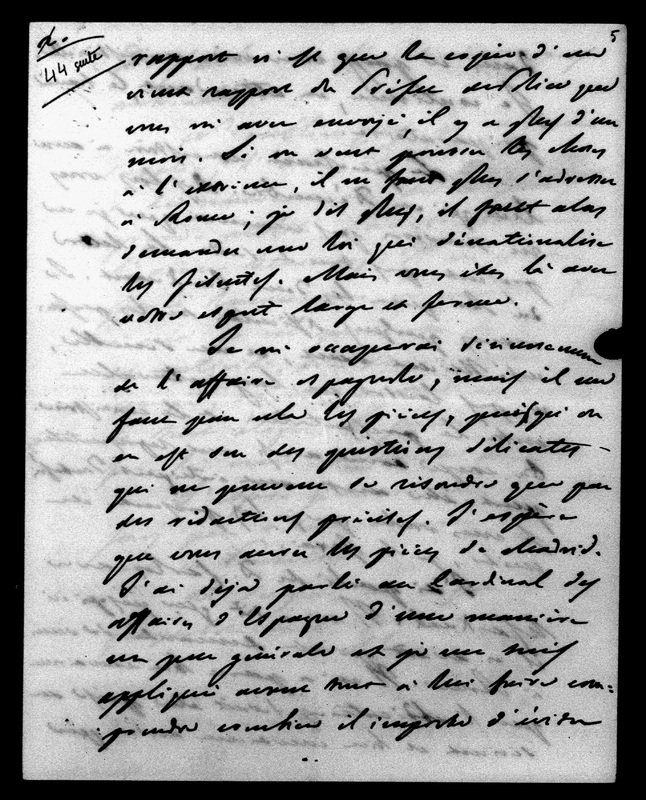 5
44 suite
rapport n'est que la copie d'un
vieux rapport du Préfet qu
vous m'avez envoyé, il y a plus d'un
mois. Si on veut pousser les choses
à l'extrême, il ne faut plus s'adresser
à Rome ; je dis plus, il faut alors
demander une loi qui dénationalise
les Jésuites. Mais vous êtes là avec
votre esprit large et ferme.
Je m'occuperai sérieusement
de l'affaire espagnole, mais il me
faut pour cela les pièces, puisqu'on
en est sur des questions délicates
qui ne peuvent se résoudre que par
des rédactions précises. J'espère
que vous aurez les pièces de Madrid.
J'ai déjà parlé au Cardinal des
affaires d'Espagne d'une manière
un peu générale et je me suis
appliqué avant tout à lui faire com=
prendre combien il importe d'éviter